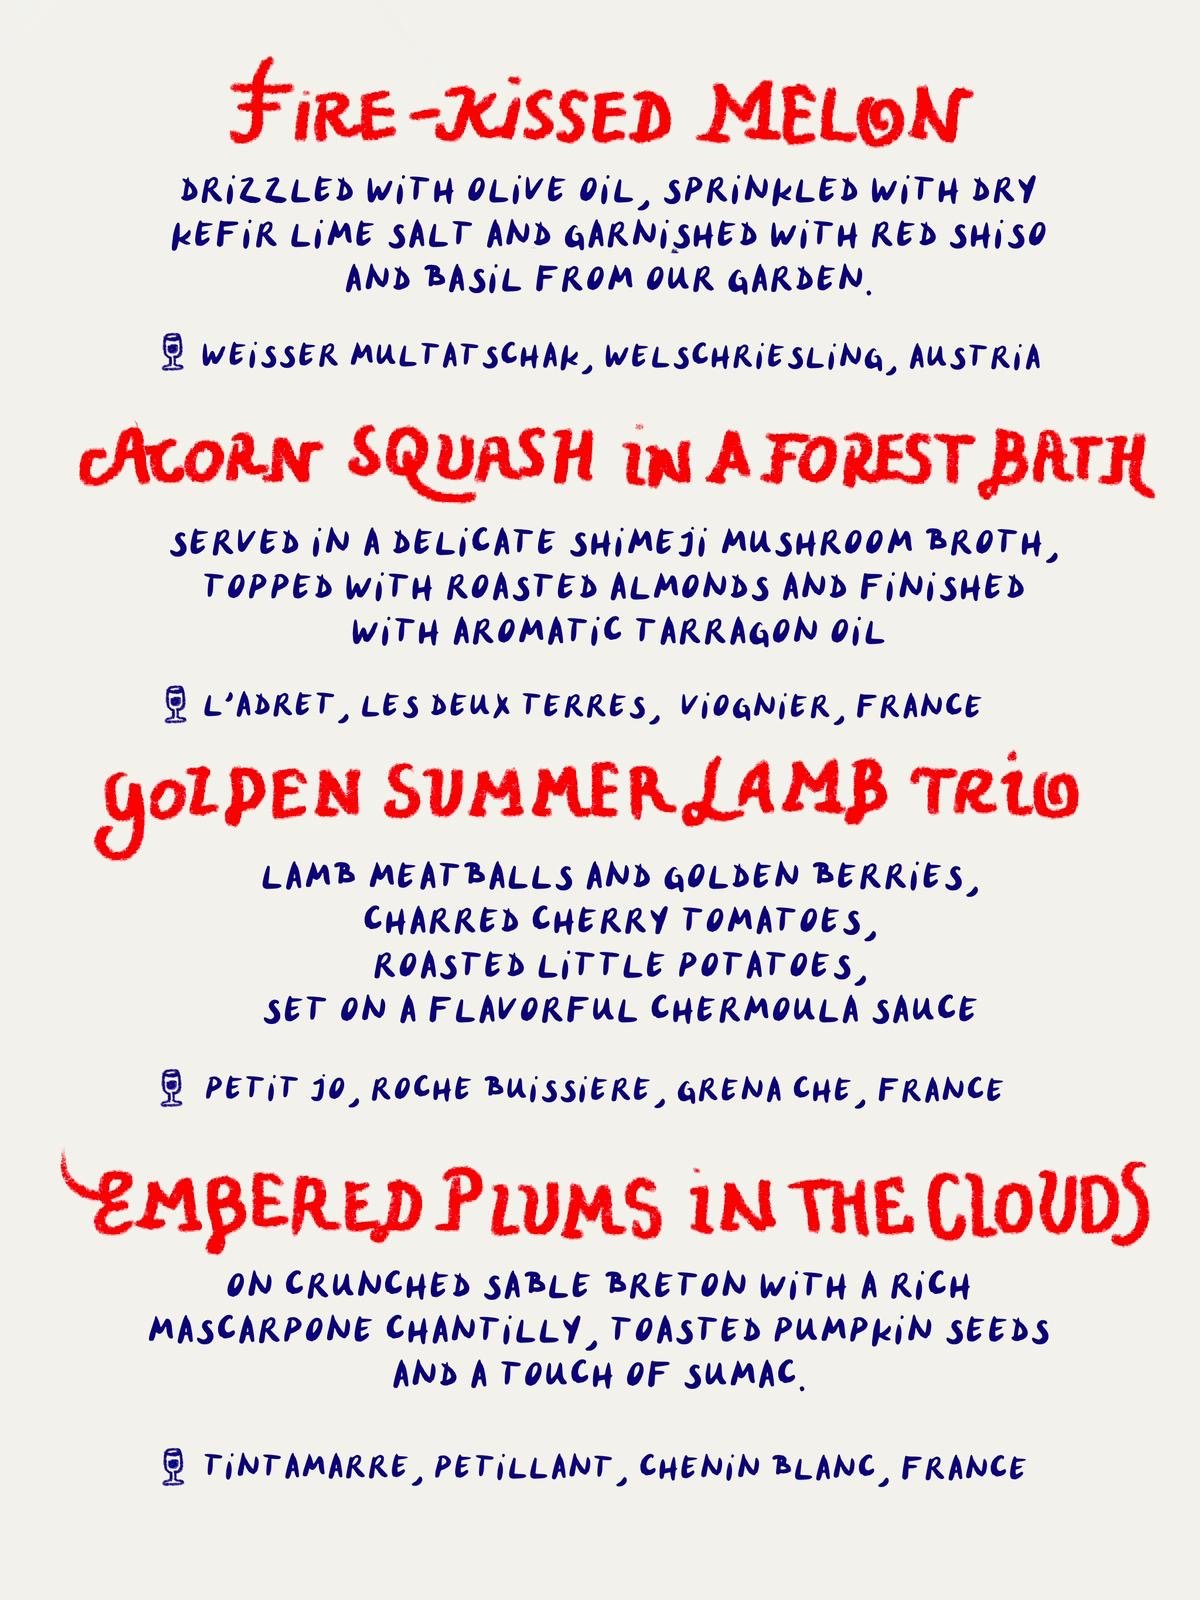 FiRE-KiSSED MELON
DRiZZLED WiTH OLiVE OiL, SPRiNKLED WiTH DRY
KEFiR LiME SALT AND GARNiSHED WiTH RED SHiSO
AND BASiL FROM OUR GARDEN.
WEiSSER MULTATSCHAK, WELSCHRiESLiNG, AUSTRiA
ACORN SQUASH iN A FOREST BATH
SERVED iN A DELiCATE SHiMEJi MUSHROOM BROTH,
TOPPED WiTH ROASTED ALMONDS AND FiNiSHED
WiTH AROMATiC TARRAGON OiL
L'ADRET, LES DEUX TERRES, ViOGNiER, FRANCE
GOLDEN SUMMER LAMB TRiO
LAMB MEATBALLS AND GOLDEN BERRiES,
CHARRED CHERRY TOMATOES,
ROASTED LiTTLE POTATOES,
SET ON A FLAVORFUL CHERMOULA SAUCE
PETiT JO, ROCHE BUiSSiERE, GRENA CHE, FRANCE
EMBERED PLUMS iN THE CLOUDS
ON CRUNCHED SABLE BRETON WiTH A RiCH
MASCARPONE CHANTiLLY, TOASTED PUMPKiN SEEDS
AND A TOUCH OF SUMAC.
TiNTAMARRE, PETiLLANT, CHENiN BLANC, FRANCE